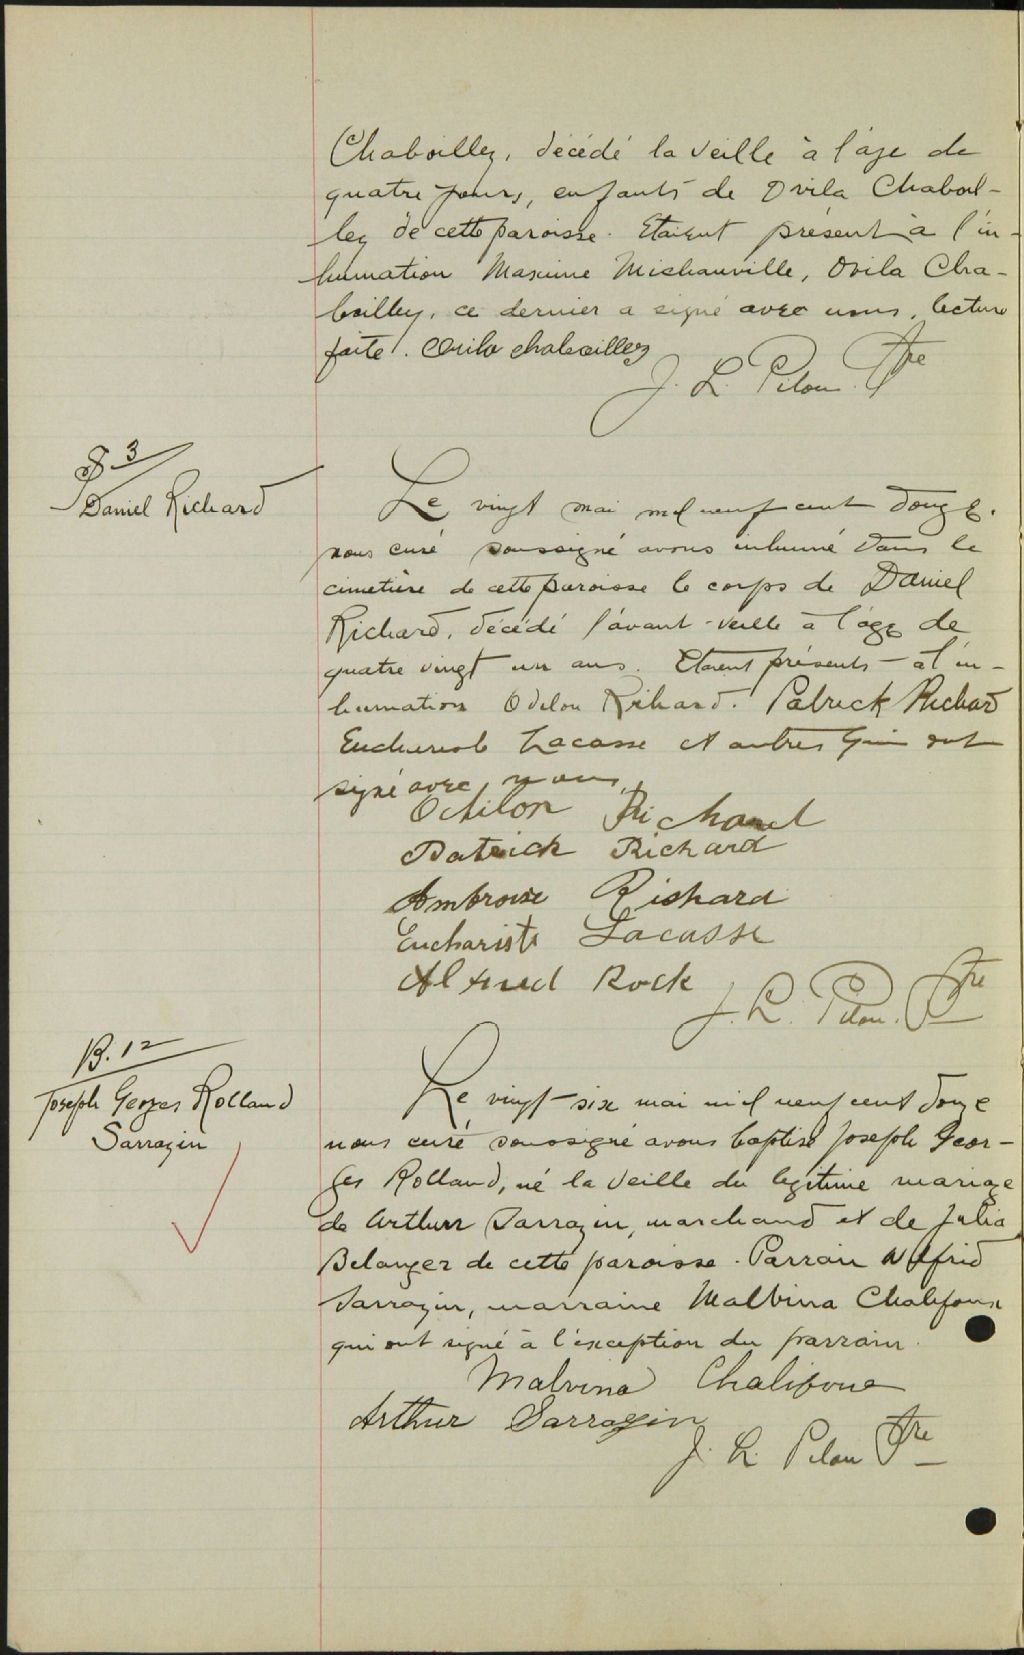 Chaboillez, décédé la veille à l'âge de
quatre jours, enfants de Ovila Chaboil-
lez de cette paroisse. Etaient présent à l'in-
humation Maxime Michauville, Ovila Cha-
boillez, ce dernier a signé avec nous, lecture
faite. Ovila Chaboillez
J. L. Pilon Ptre
S 3
Daniel Richard
Le vingt mai mil neuf cent douze.
nous curé soussigné avons inhumé dans le
cimetière de cette paroisse le corps de Daniel
Richard, décédé l'avant-veille à l'âge de
quatre vingt un ans. Etaient présents à l'in-
humation Odilon Richard. Patrick Richard
Lacasse et autres qui ont
signé avec nous.
Odilon Richard
Patrick Richard
Ambroise Richard
Euchariste Lacasse
Alfred Rock
J. L. Pilon. Ptre
B. 12
Joseph Georges Rolland
Sarrazin
Le vingt-six mai mil neuf cent douze
nous curé soussigné avons baptisé Joseph Geor-
ges Rolland, né la veille du légitime mariage
de Arthur Sarrazin, marchand et de Julia
Belanger de cette paroisse. Parrain Wilfrid
Sarrazin, marraine Malvina Chalifoux
qui ont signé à l'exception du parrain.
Malvina Chalifoux
Arthur Sarrazin
J. L. Pilon Ptre